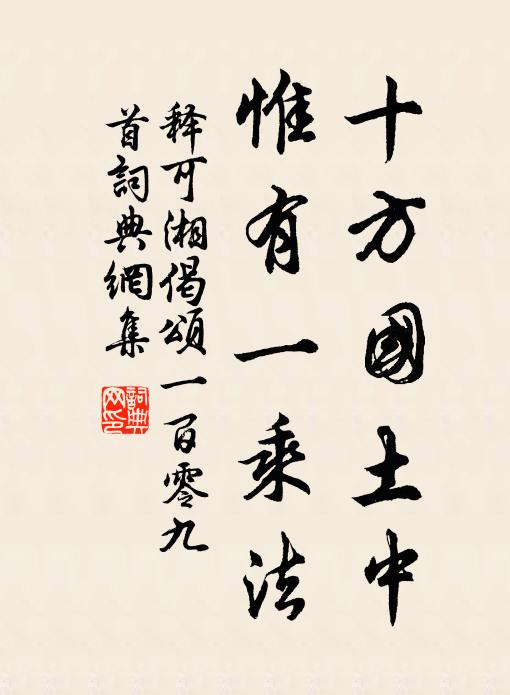 十方國土中
惟有一乘法
释可湘偈頌一百零九
首詞典網集
詞典网印